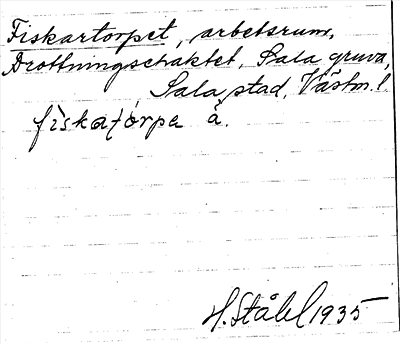 Fiskartorpet, arbetsrum,
Drottningschaktet, Sala gruva,
Sala stad, Västm. l.
fiskatòrpe å.
H. Ståhl 1935